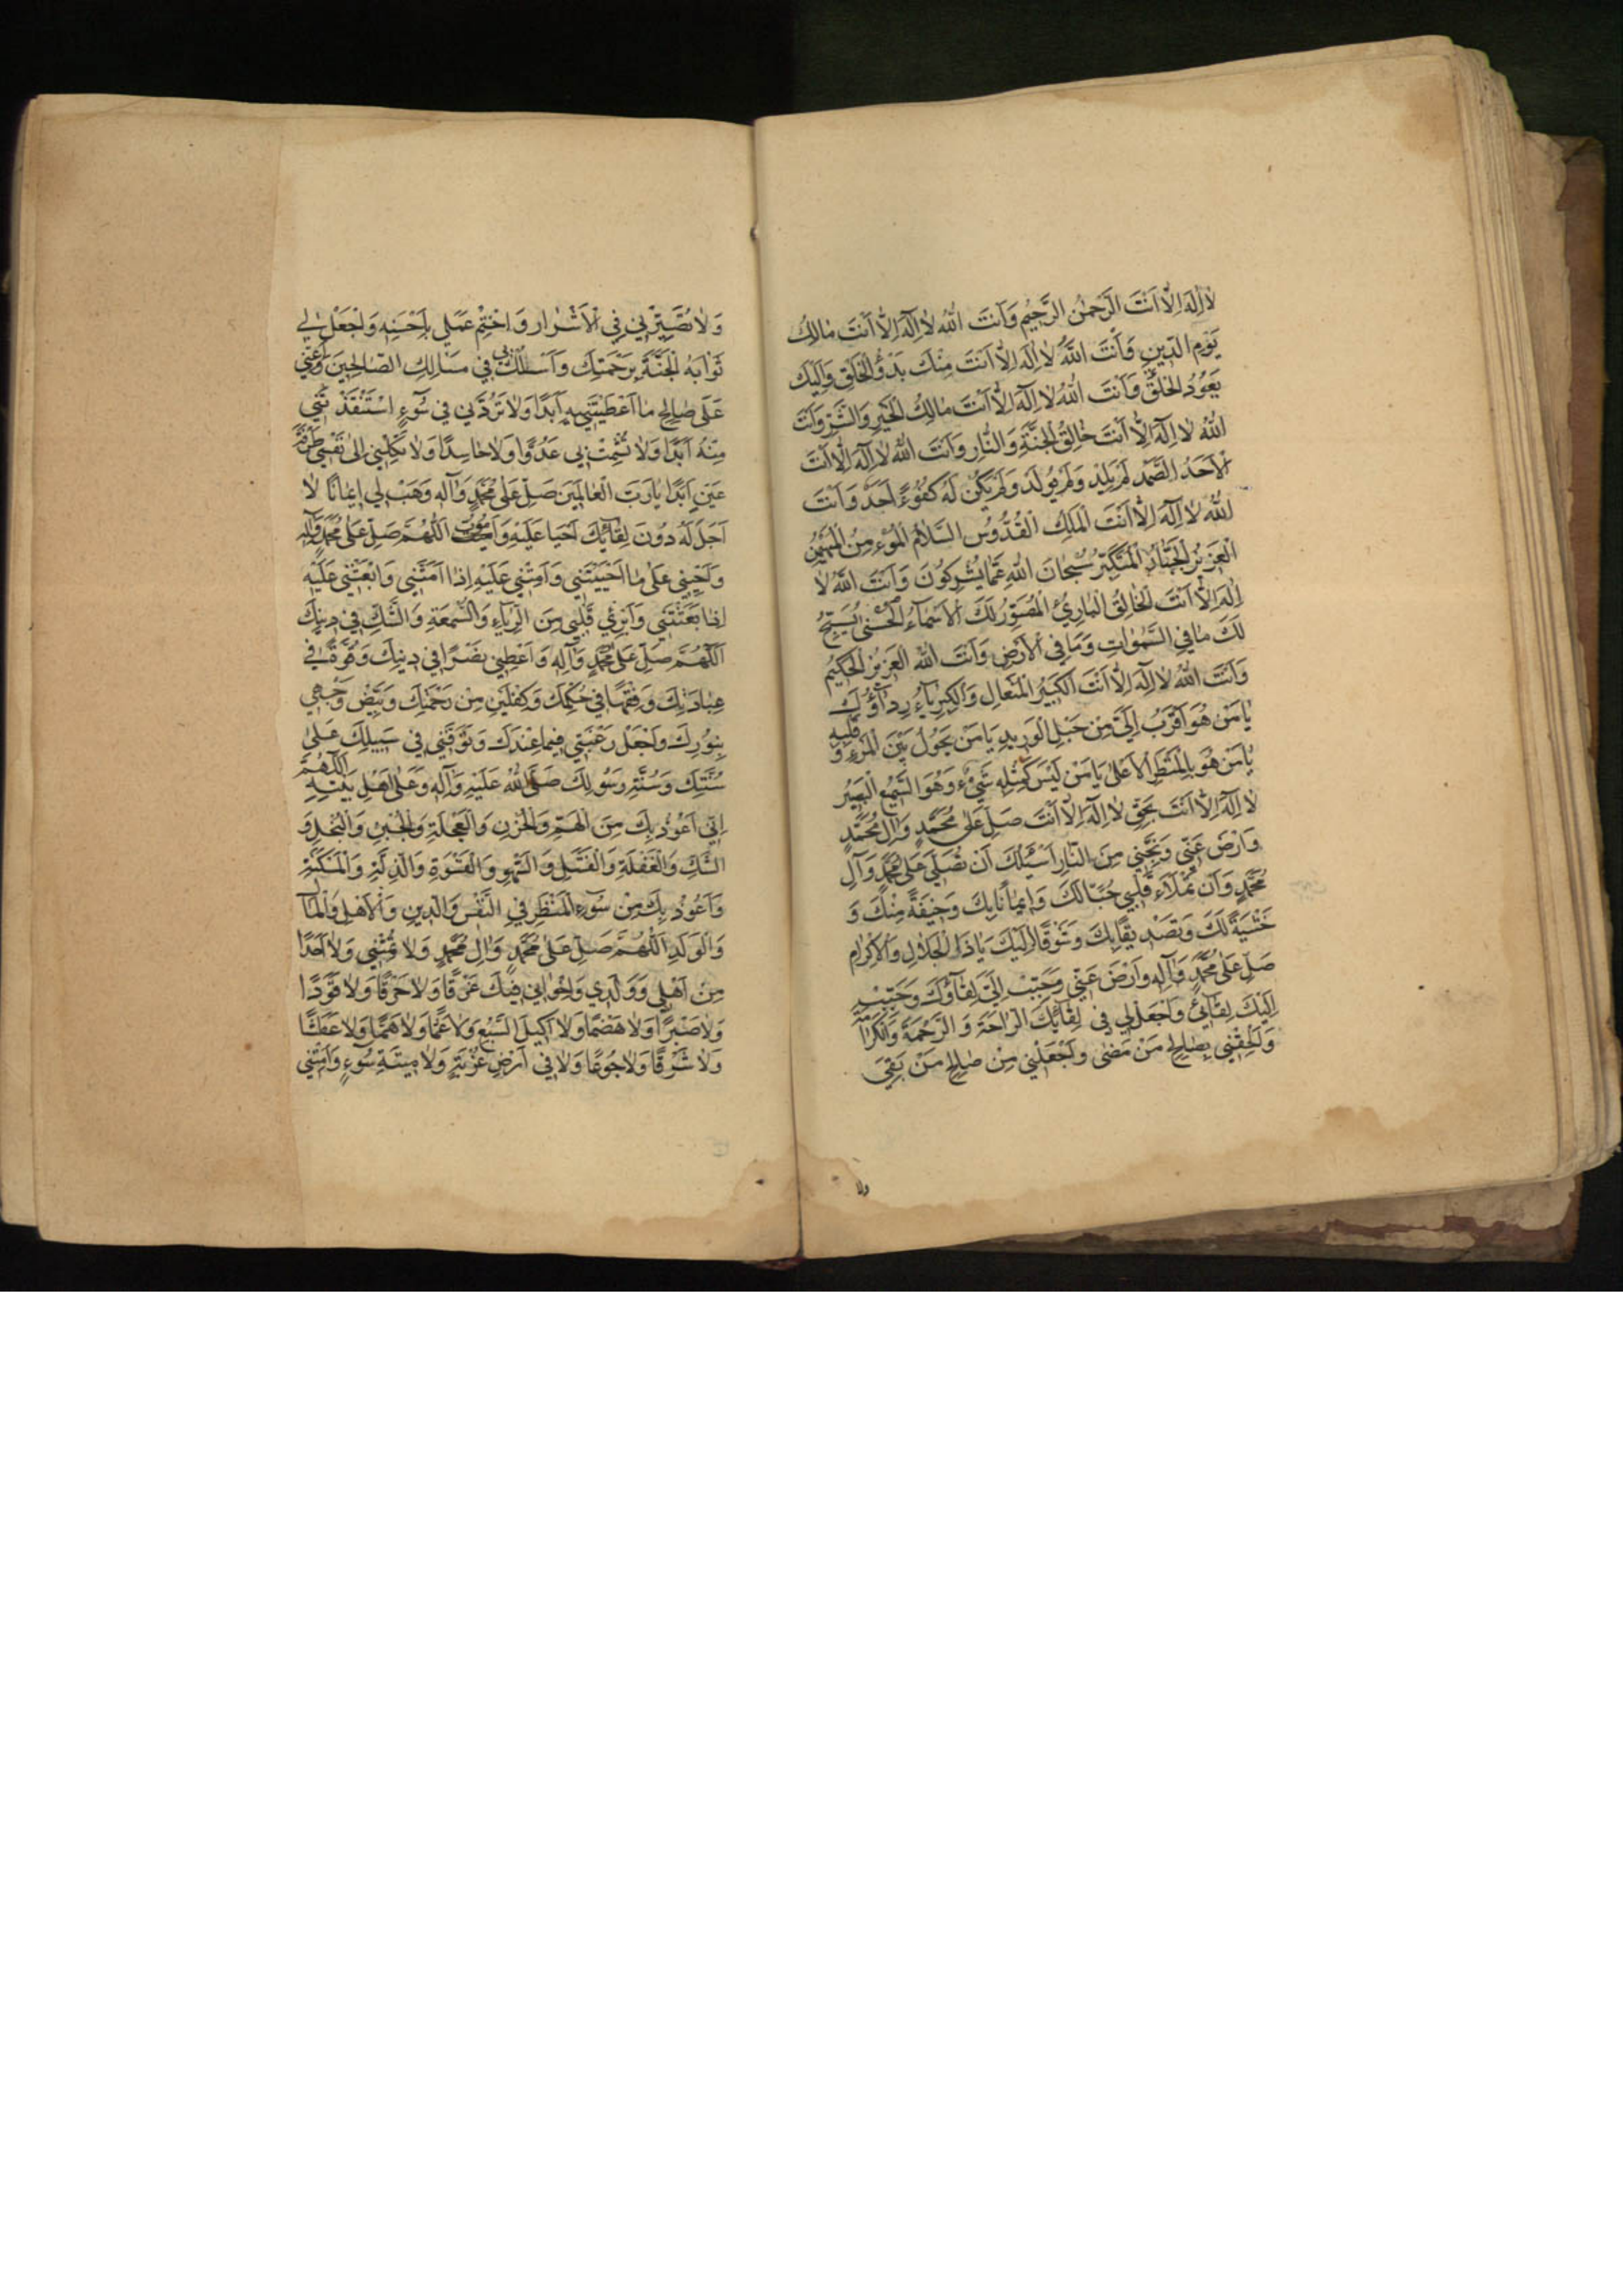 لا اِلٰهَ اِلّا اَنْتَ الرَّحْمٰنُ الرَّحِيْمُ وَاَنْتَ اللهُ لا اِلٰهَ اِلّا اَنْتَ مالِكُ
يَوْمِ الدّيْنِ وَاَنْتَ اللهُ لا اِلٰهَ اِلّا اَنْتَ مِنْكَ بَدْؤُ الْخَلْقِ وَاِلَيْكَ
يَعُوْدُ الْخَلْقُ وَاَنْتَ اللهُ لا اِلٰهَ اِلّا اَنْتَ مالِكُ الْخَيْرِ وَالشَّرِّ وَاَنْتَ
اللهُ لا اِلٰهَ اِلّا اَنْتَ خالِقُ الْجَنَّةِ وَالنّارِ وَاَنْتَ اللهُ لا اِلٰهَ اِلّا اَنْتَ
الْاَحَدُ الصَّمَدُ لَمْ يَلِدْ وَلَمْ يُوْلَدْ وَلَمْ يَكُنْ لَهُ كُفُوًءا اَحَدٌ وَاَنْتَ
اللهُ لا اِلٰهَ اِلّا اَنْتَ الْمَلِكُ الْقُدُّوْسُ السَّلامُ الْمُؤْمِنُ الْمُهَيْمِنُ
الْعَزِيْزُ الْجَبّارُ الْمُتَكَبِّرُ سُبْحانَ اللهِ عَمّا يُشْرِكُوْنَ وَاَنْتَ اللهُ لا
اِلٰهَ اِلّا اَنْتَ الْخالِقُ الْبارِئُ الْمُصَوِّرُ لَكَ الْاَسْماءُ الْحُسْنىٰ يُسَبِّحُ
لَكَ ما فِي السَّمٰواتِ وَمَا فِي الْاَرْضِ وَاَنْتَ اللهُ الْعَزِيْزُ الْحَكِيْمُ
وَاَنْتَ اللهُ لا اِلٰهَ اِلّا اَنْتَ الْكَبِيْرُ الْمُتَعالِ وَالْكِبْرِياءُ رِداؤُكَ
يا مَنْ هُوَ اَقْرَبُ اِلَيَّ مِنْ حَبْلِ الْوَرِيْدِ يَا مَنْ يَحُوْلُ بَيْنَ الْمَرْءِ وَ قَلْبِهِ
يا مَنْ هُوَ بِالْمَنْظَرِ الْاَعْلىٰ يَا مَنْ لَيْسَ كَمِثْلِهِ شَيْءٌ وَهُوَ السَّمِيْعُ الْبَصِيْرُ
لا اِلٰهَ اِلّا اَنْتَ بِحَقِّ لا اِلٰهَ اِلّا اَنْتَ صَلِّ عَلىٰ مُحَمَّدٍ وَالِ مُحَمَّدٍ
وَارْضَ عَنّي وَنَجِّنِي مِنَ النّارِ اَسْئَلُكَ اَنْ تُصَلِّيَ عَلىٰ مُحَمَّدٍ وَآلِ
مُحَمَّدٍ وَاَنْ تَمْلَاَءَ قَلْبِي حُبًّا لَكَ وَاِيْمانًا بِكَ وَخِيْفَةً مِنْكَ وَ
خَشْيَةً لَكَ وَتَصْدِيْقًا بِكَ وَشَوْقًا اِلَيْكَ يَا ذَا الْجَلالِ وَالْاِكْرامِ
صَلِّ عَلىٰ مُحَمَّدٍ وَآلِهِ وَارْضَ عَنِّي وَحَبِّبْ اِلَيَّ لِقاؤُكَ وَحَبِّبْ
اِلَيْكَ لِقائِي وَاجْعَلْ لِي فِي لِقائِكَ الرّاحَةَ وَ الرَّحْمَةَ وَالْكَرامَةَ
وَاَلْحِقْنِي بِصالِحِ مَنْ مَضىٰ وَاجْعَلْنِي مِنْ صالِحِ مَنْ بَقِيَ
ولا
وَلا تُصَيِّرْنِي فِي الْاَشْرارِ وَ اخْتِمْ عَمَلِي بِاَحْسَنِهِ وَاجْعَلْ لِي
ثَوابَهُ الْجَنَّةَ بِرَحْمَتِكَ وَاسْلُكْ بِي فِي مَسالِكِ الصّالِحِيْنَ وَاَعِنِّي
عَلىٰ صالِحِ ما اَعْطَيْتَنِيْهِ اَبَدًا وَلا تَرُدَّنِي فِي سُوْءٍ اسْتَنْقَذْتَنِي
مِنْهُ اَبَدًا وَلا تُشْمِتْ بِي عَدُوًّا وَلا حاسِدًا وَلا تَكِلْنِي اِلىٰ نَفْسِي طَرْفَةَ
عَيْنٍ اَبَدًا يا رَبَّ الْعالَمِيْنَ صَلِّ عَلىٰ مُحَمَّدٍ وَآلِهِ وَهَبْ لِي اِيْمانًا لا
اَجَلَ لَهُ دُوْنَ لِقائِكَ اَحْيا عَلَيْهِ وَ اَمُوْتُ اَللّٰهُمَّ صَلِّ عَلىٰ مُحَمَّدٍ وَآلِهِ
وَاَحْيِنِي عَلىٰ ما اَحْيَيْتَنِي وَاَمِتْنِي عَلَيْهِ اِذا اَمَتَّنِي وَابْعَثْنِي عَلَيْهِ
اِذا بَعَثْتَنِي وَاَبْرِئْ قَلْبِي مِنَ الرِّياءِ وَالسُّمْعَةِ وَالشَّكِّ فِي دِيْنِكَ
اَللّٰهُمَّ صَلِّ عَلىٰ مُحَمَّدٍ وَآلِهِ وَاَعْطِنِي نَصْرًا فِي دِيْنِكَ وَقُوَّةً فِي
عِبادَتِكَ وَفِقْهًا فِي حُكْمِكَ وَكِفْلَيْنِ مِنْ رَحْمَتِكَ وَبَيِّضْ وَجْهِي
بِنُوْرِكَ وَاجْعَلْ رَغْبَتِي فِيْما عِنْدَكَ وَتَوَفَّنِي فِي سَبِيْلِكَ عَلىٰ
سُنَّتِكَ وَسُنَّةِ رَسُوْلِكَ صَلَّى اللهُ عَلَيْهِ وَآلِهِ وَعَلىٰ اَهْلِ بَيْتِهِ اَللّٰهُمَّ
اِنّي اَعُوْذُ بِكَ مِنَ الْهَمِّ وَالْحُزْنِ وَالْعَجَلَةِ وَالْجُبْنِ وَالْبُخْلِ وَ
الشَّكِّ وَالْغَفْلَةِ وَالْفَشَلِ وَالسَّهْوِ وَالْقَسْوَةِ وَالذِّلَّةِ وَالْمَسْكَنَةِ
وَاَعُوْذُ بِكَ مِنْ سُوْءِ الْمَنْظَرِ فِي النَّفْسِ وَالدِّيْنِ وَالْاَهْلِ وَالْمالِ
وَالْوَلَدِ اَللّٰهُمَّ صَلِّ عَلىٰ مُحَمَّدٍ وَالِ مُحَمَّدٍ وَلا تُمِتْنِي وَلا اَحَدًا
مِنْ اَهْلِي وَوَلَدِي وَاِخْوانِي فِيْكَ غَرْقًا وَلا حَرْقًا وَلا قَوَدًا
وَلا صَبْرًا وَلا هَضْمًا وَلا اَكِيْلَ السَّبُعِ وَلا غَمًّا وَلا هَمًّا وَلا عَطَشًا
وَلا شَرْقًا وَلا جُوْعًا وَلا فِي اَرْضِ غُرْبَةٍ وَلا مِيْتَةِ سُوْءٍ وَاَمِتْنِي